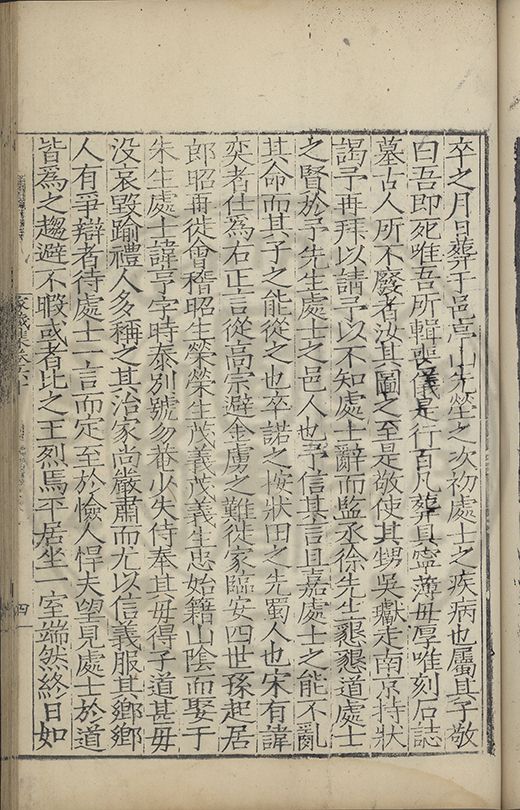 卒之月日葬于邑亭山先塋之次初處士之疾病也屬其子敬
曰吾即死唯吾所輯喪儀是行百凡葬具寧薄毋厚唯刻石誌
墓古人所不廢者汝其圖之至是敬使其甥吳瓛走南京持狀
謁予再拜以請予以不知處士辭而監丞徐先生懇懇道處士
之賢於予先生處士之邑人也予信其言且嘉處士之能不亂
其命而其子之能從之也卒諾之按狀田之先蜀人也宋有諱
奕者仕為右正言從高宗避金虜之難徙家臨安四世孫起居
郎昭再徙會稽昭生榮榮生茂義茂義生忠始籍山陰而娶于
朱生處士諱亨字時泰別號勿菴少失侍奉其毋得子道甚毋
没哀毀踰禮人多稱之其治家尚嚴肅而尤以信義服其鄉鄉
人有爭辯者待處士一言而定至於憸人悍夫望見處士於道
皆為之趨避不暇或者比之王烈焉平居坐一室端然終日如
四